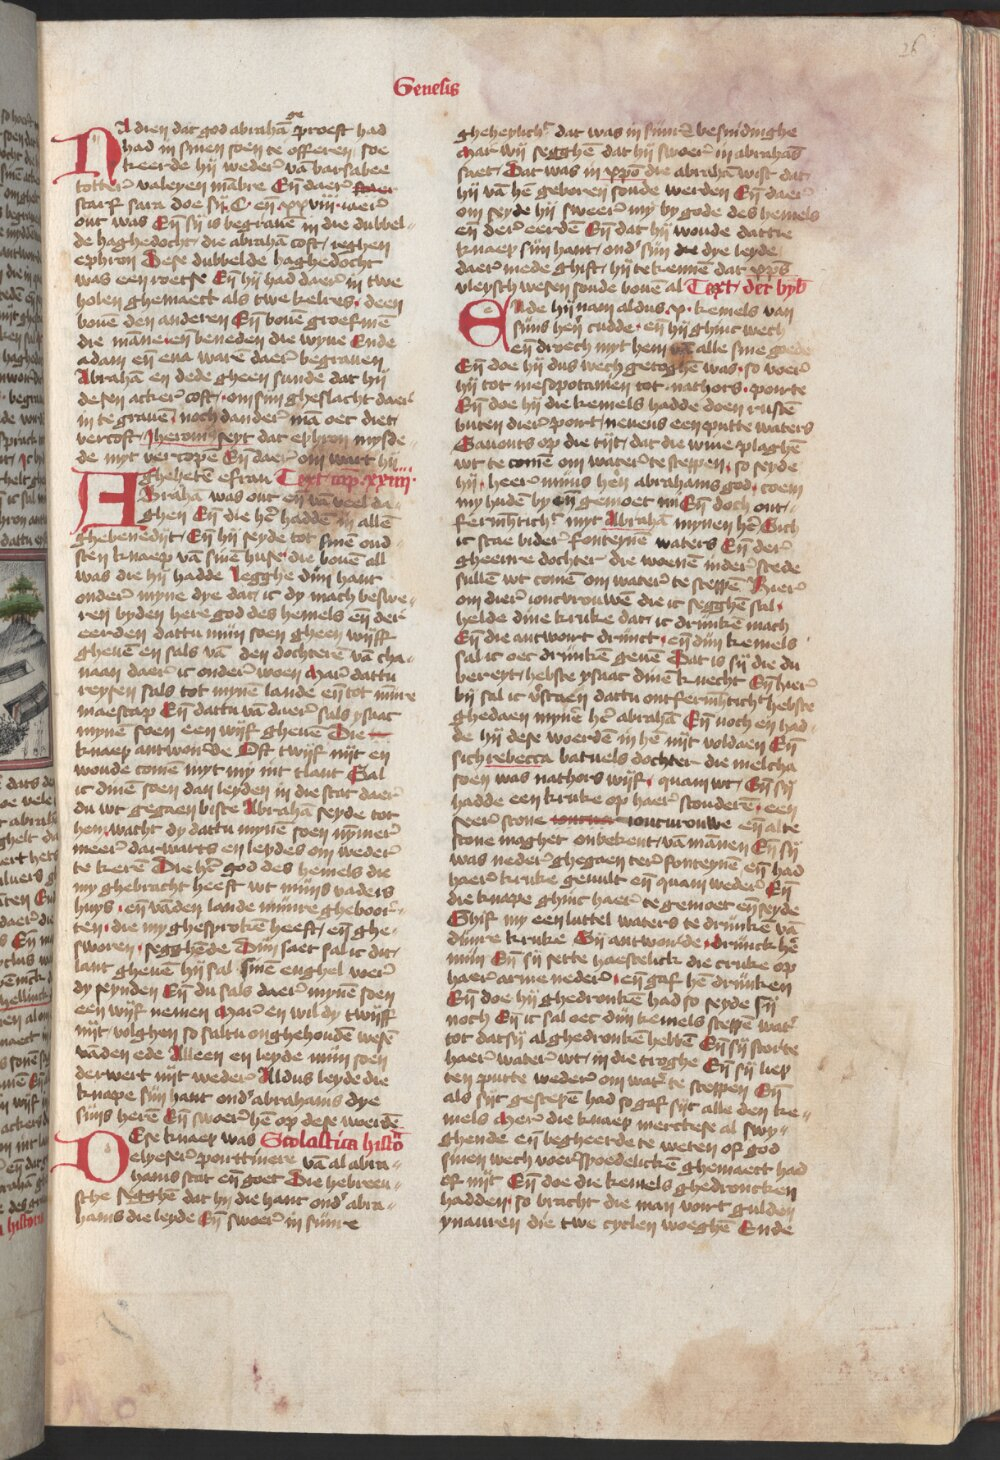 26
Genesis
NA dien dat god abrahā proeft had
had in sinen soen te offeren / soe
keerde hij weder vā barsabee
totter valeyen mābre Eñ daer
starf sara doe sij C eñ xxviii iaer
out was Eñ sij is begrauē in die dubbel-
de haghedocht / die abrahā coft / ieghen
ephron Dese dubbelde haghedocht
was een roetse Eñ hij had daer in twe
holen ghemaect als twe kelres · deen
bouē den anderen Eñ bouē groef mē
die māne eñ beneden die wyue Ende
adam eñ eua warē daer begrauen
Abrahā en dede gheen sunde dat hij
desen acker coft / om sijn gheslacht daer
in te grauē · noch dander mā oec diet
vercoft / Iheronimus seyt dat ephron mysde-
de myt vercope Eñ daer om wart hij
ghehetē efran Text cap. xxiiij.
Abrahā was out eñ vā veel da-
ghen Eñ die her haddē in allē
ghebenedijt / Eñ hij seyde tot sinē oud-
sten knaep vā sinē huse die bouē all
was die hij hadde Legghe dijn hant
onder myne dye dat ic dy mach beswe-
ren byden here god des hemels eñ der
eerden dattu mijn soen gheen wijff
gheuē en sals vā den dochterē vā cha-
naan daer ic onder woen Mar dattu
reysen sals tot mynē lande eñ tot mijnre
maescap Eñ dattu vā daer sals ysaac
mynē soen een wijf gheuē Die
knaep antworde Oft twijf nijt en
woude comē myt my int tlant Sal
ic dinē soen dan leyden in die stat daer
du wt gegaen biste Abrahā seyde tot
hem wacht dy dattu mynē soen nymer
meer darwarts en leydes om weder
te kerē Die her god des hemels die
my ghebracht heeft wt mijns vaders
huys · eñ vāden lande mijnre gheboor-
ten · die my ghesprokē heeft / eñ ghe-
sworen / segghēde Dijn saet sal ic dit
lant gheuē hij sal sinē enghel voer
dy seynden Eñ du sals daer mynē soen
een wijf nemen Mar en wil dy twijff
nijt volghen so saltu onghehoudē wesē
vāden ede Alleen en leyde mijn soen
derwert nijt weder Aldus leyde die
knape sijn hant ond' abrahams dye
sijns herē Eñ swoer hē op dese woerdē
DEse knaep was Scolastica histo
elyeser / pourtiniere vā al abra-
hams scat eñ goet Die hebreeu-
sche segghē dat hij die hant ond' abra-
hams die leyde Eñ swoer in sijnre
gheheylich' dat was in sijnre besnidinghe
Mar wij segghē dat hij swoer in abrahās
saet / Dat was in xpo die abrahā wist dat
hij vā hē geboren soude werden Eñ daer
om seyde hij sweer my by gode des hemels
eñ der eerdē Eñ dat hij woude dattie
knaep sijn hant / ond' sijn die dye leyde
daer mede ghift / hij te kennē dat xpūs
vleysch wesen soude bouē al Text / der byb
Ende hij nam aldus .x. kemels van
sijns her cudde · eñ hij ghinc wech
eñ droech myt hem vā alle sine goede
Eñ doe hij dus wech getoghē was · so voer
hij tot mesopotamen tot nathors · poirte
Eñ doe hij die kemels hadde doen rustē
buten dier poirt / neuens een putte waters
Sauonts op die tijt / dat die wiue plaghē
wt te comē om water te steppen / so seyde
hij · heer mijns heren abrahams god · coem
my huden by eñ gemoet mi Eñ doch ont-
fermhertich' myt Abrahā mynen her Sich
ic stae bider fonteynē waters Eñ der
gheenre dochter die woenē inder stede
sullē wt comē om water te steppē Hier
om dier ioncvrouwē die ic segghē sal /
helde dine kruke dat / ic drinkē mach
Eñ die antwort drinct / eñ dijn kemels
sal ic oec drinkē geuē Dat is sij die du
bereyt hebste ysaac dinē knecht Eñ hier
bij sal ic v'staen dattu ontfermhertich' hebste
ghedaen mynē her abrahā Eñ noch en had-
de hij dese woerden in hē nijt voldaen Eñ
sich rebecca batuels dochter die melcha
soen was nathors wijf · quam wt / Eñ sij
hadde een kruke op haer scouderē · een
seer scone ioncurouwe eñ alte
scone maghet onbekent / vā manen Eñ sij
was neder ghegaen ter fonteynē eñ had
haer kruke geuult eñ quam weder Eñ
die knape ghinc haer te gemoet eñ seyde
Ghif my een luttel waters te drinkē vā
dijnre kruke Sij antworde drinck hē
mijn Eñ sij sette haestelick die cruke op
haer arme neder · eñ gaf hē drinken
Eñ doe hij ghedronkē had so seyde sij
noch Eñ ic sal oec dijn kemels steppē wat'
tot dat sij al ghedronkē hebbē Eñ sij storte
haer water wt / in die troghe Eñ sij liep
ten putte weder om wat' te steppen Eñ
als sijt gestepē had so gaf sijt alle den ke-
mels Mer die knaep mercte se al swy-
ghende eñ begheerde te weten of god
sinen wech voerspoedelickē ghemaect had
of nijt Eñ doe die kemels ghedroncken
hadden so bracht die man voirt gulden
ynauren die twe cyclen woeghē Ende